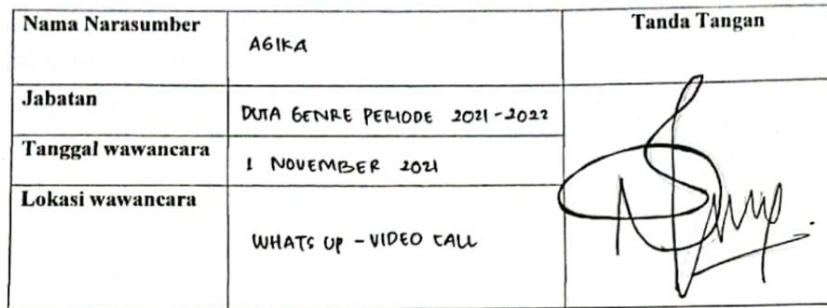 Nama Narasumber AGIKA Tanda Tangan
Jabatan DUTA GENRE PERIODE 2021-2022
Tanggal wawancara 1 NOVEMBER 2021
Lokasi wawancara WHATS UP - VIDEO CALL